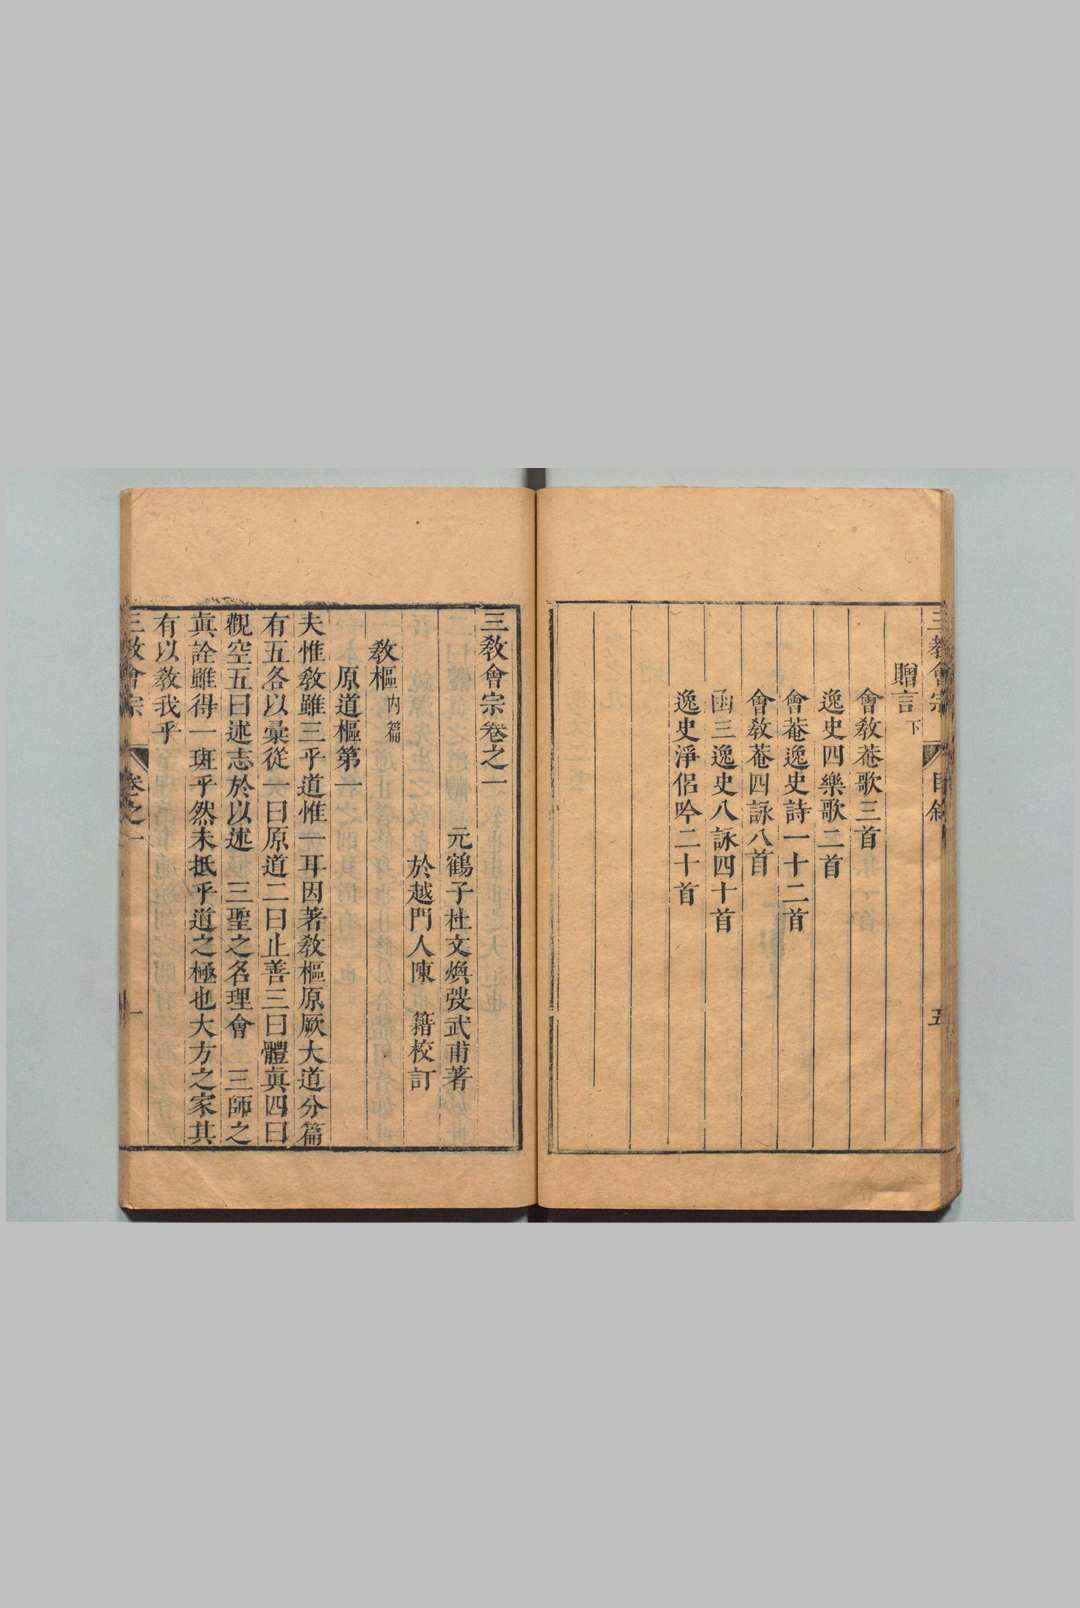 三教會宗
目錄
五
贈言下
會教菴歌三首
逸史四樂歌二首
會菴逸史詩一十二首
會教菴四詠八首
函三逸史八詠四十首
逸史淨侶吟二十首
三教會宗卷之一
元鶴子杜文煥弢武甫著
於越門人陳 籍校訂
教樞內篇
原道樞第一
夫惟教雖三乎道惟一耳因著教樞原厥大道分篇
有五各以彙從一曰原道二曰止善三曰體真四曰
觀空五曰述志於以述 三聖之名理會 三師之
眞詮雖得一班乎然未抵乎道之極也大方之家其
有以教我乎
三教會宗
卷之一
一